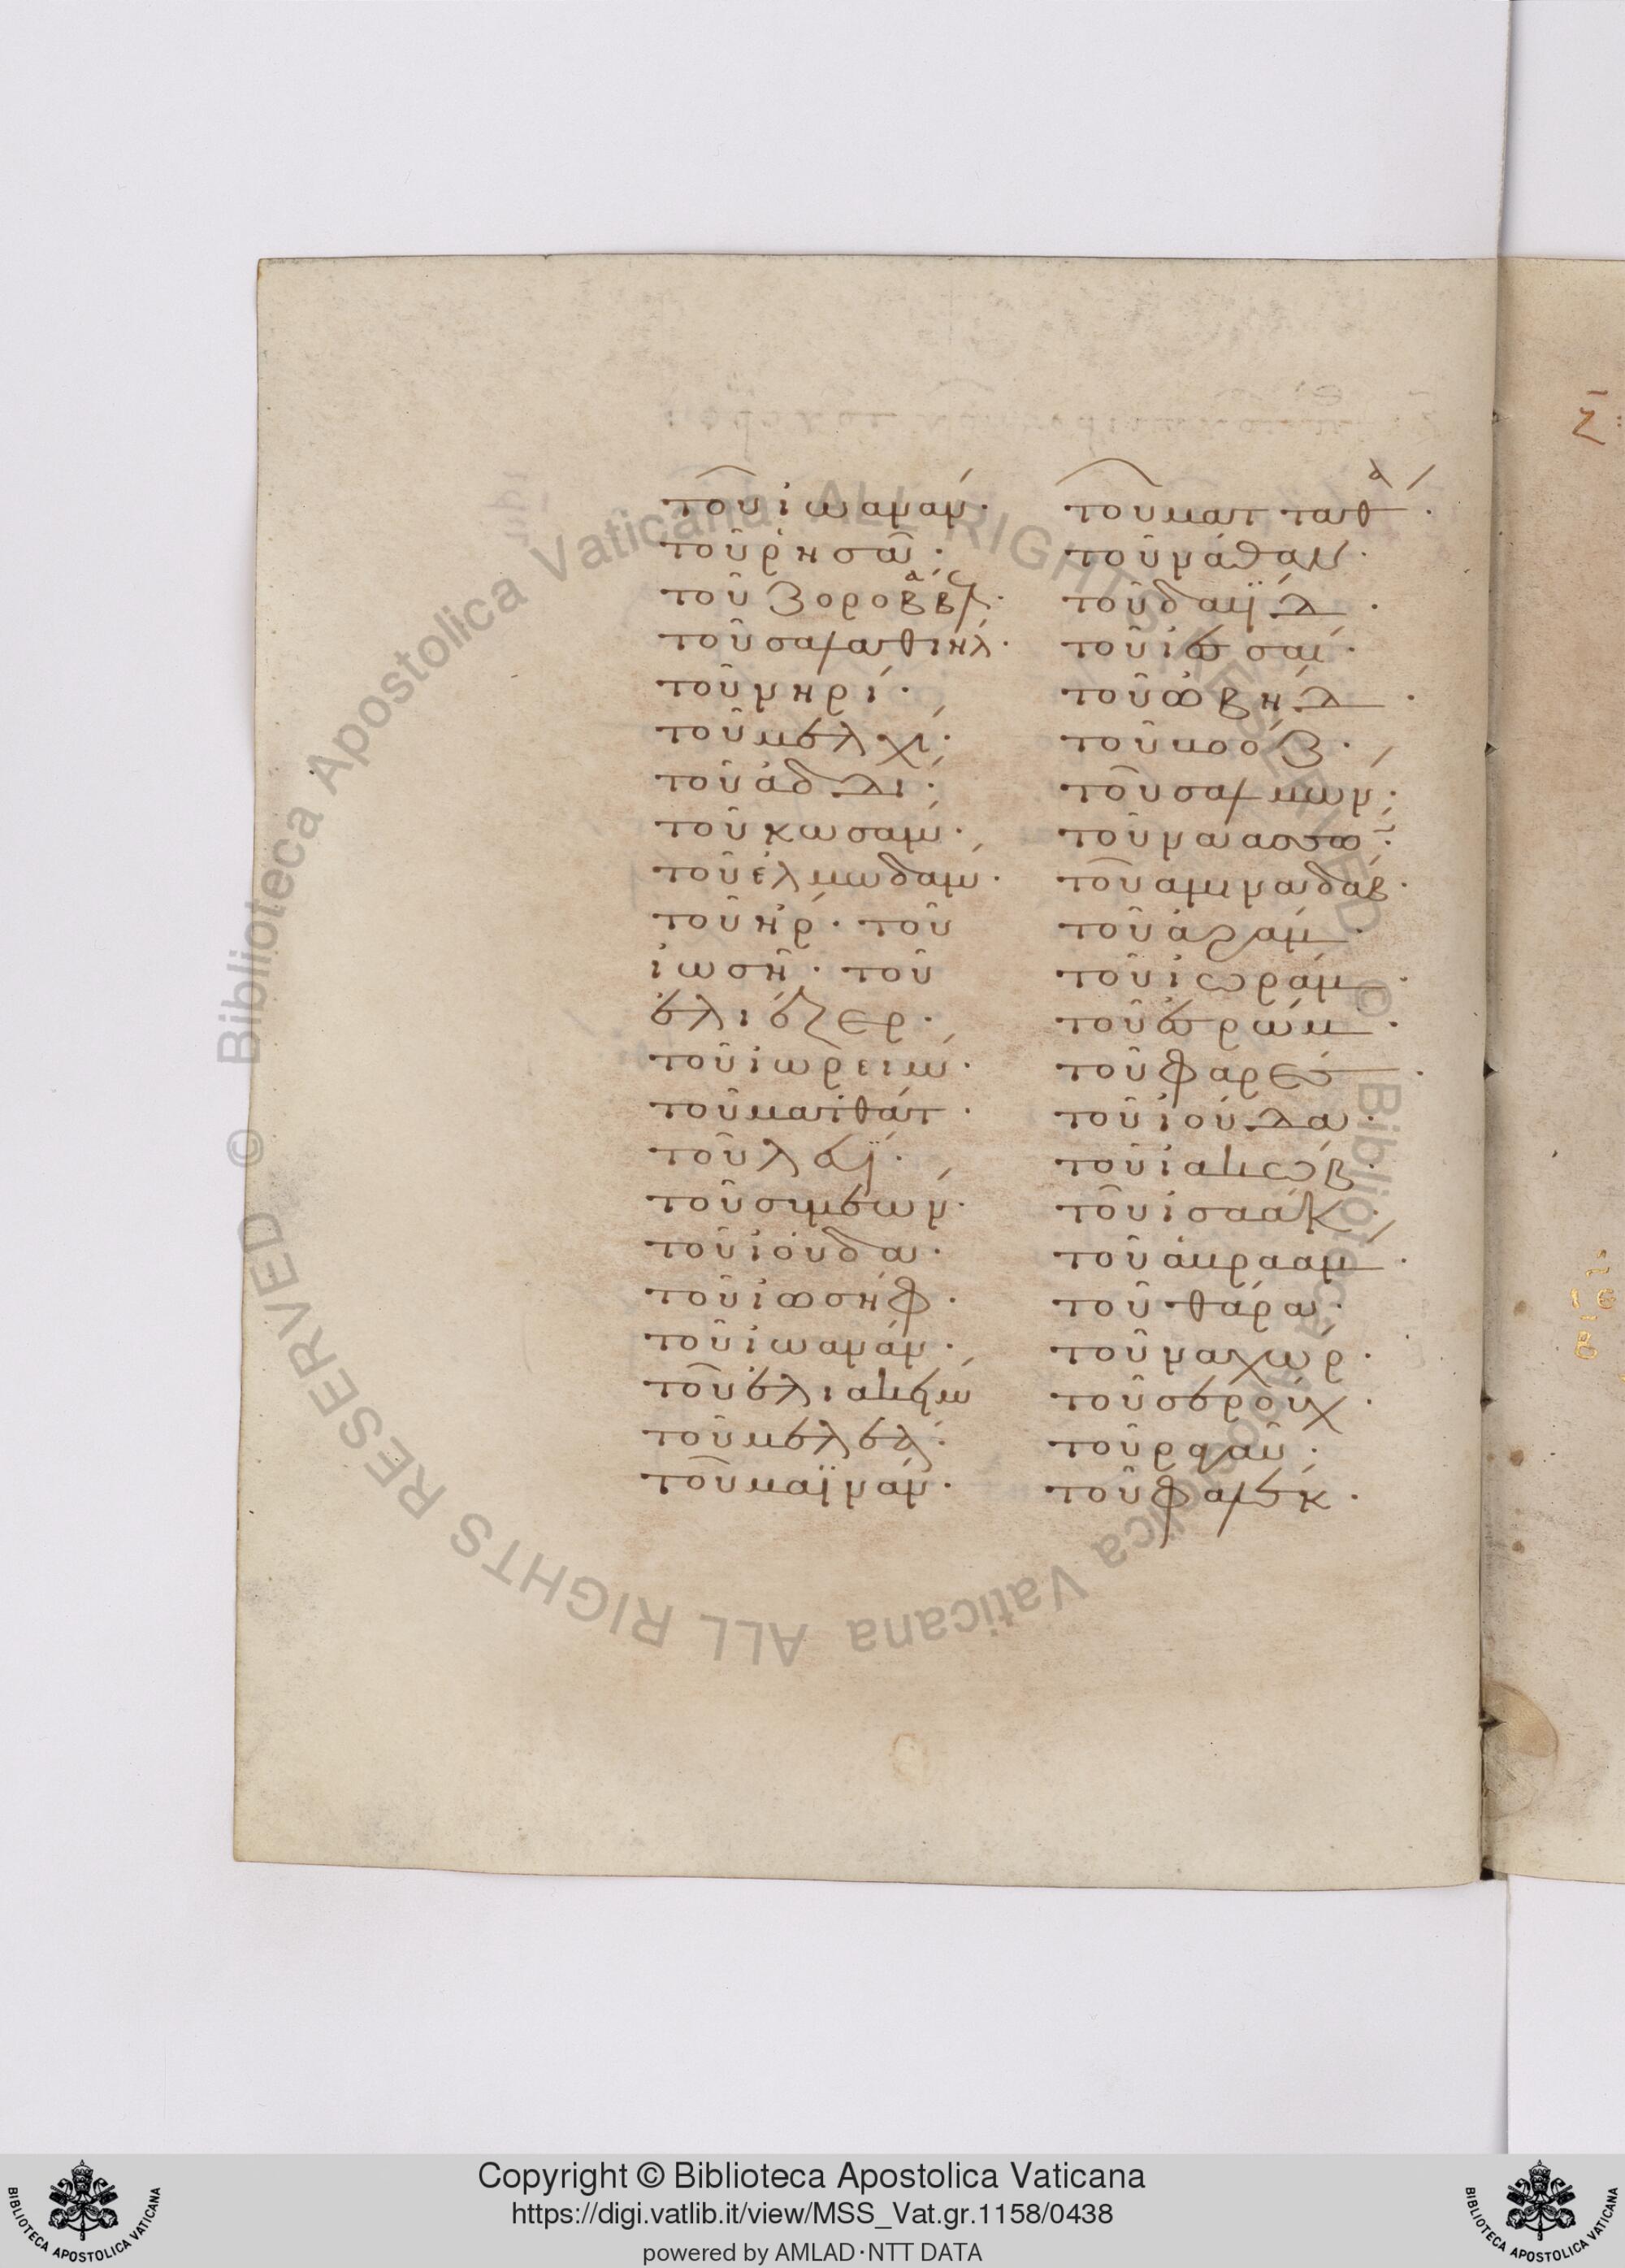 τοῦ ἰωανάν·
τοῦ ῥησᾶ·
τοῦ ζοροβάβελ·
τοῦ σαλαθιήλ·
τοῦ νηρί·
τοῦ μελχί·
τοῦ ἀδδί·
τοῦ κωσάμ·
τοῦ ἐλμωδάμ·
τοῦ ἤρ· τοῦ
ἰωσῆ· τοῦ
ἐλιέζερ·
τοῦ ἰωρείμ·
τοῦ ματθάτ·
τοῦ λευΐ·
τοῦ συμεών·
τοῦ ἰούδα·
τοῦ ἰωσήφ·
τοῦ ἰωανάν·
τοῦ ἐλιακείμ
τοῦ μελεᾶ·
τοῦ μαϊνάν·
τοῦ ματταθά·
τοῦ νάθαν·
τοῦ δαυῒδ·
τοῦ ἰεσσαί·
τοῦ ὠβήδ·
τοῦ βοόζ·
τοῦ σαλμών·
τοῦ ναασσών·
τοῦ αμιναδάβ·
τοῦ ἀράμ·
τοῦ ἰωράμ·
τοῦ ἐσρώμ·
τοῦ φαρές·
τοῦ ἰούδα·
τοῦ ἰακώβ·
τοῦ ἰσαάκ·
τοῦ ἀβραάμ·
τοῦ θάρα·
τοῦ ναχώρ·
τοῦ σερούχ·
τοῦ ραγαῦ·
τοῦ φαλέκ·
Copyright © Biblioteca Apostolica Vaticana
https://digi.vatlib.it/view/MSS_Vat.gr.1158/0438
powered by AMLAD·NTT DATA